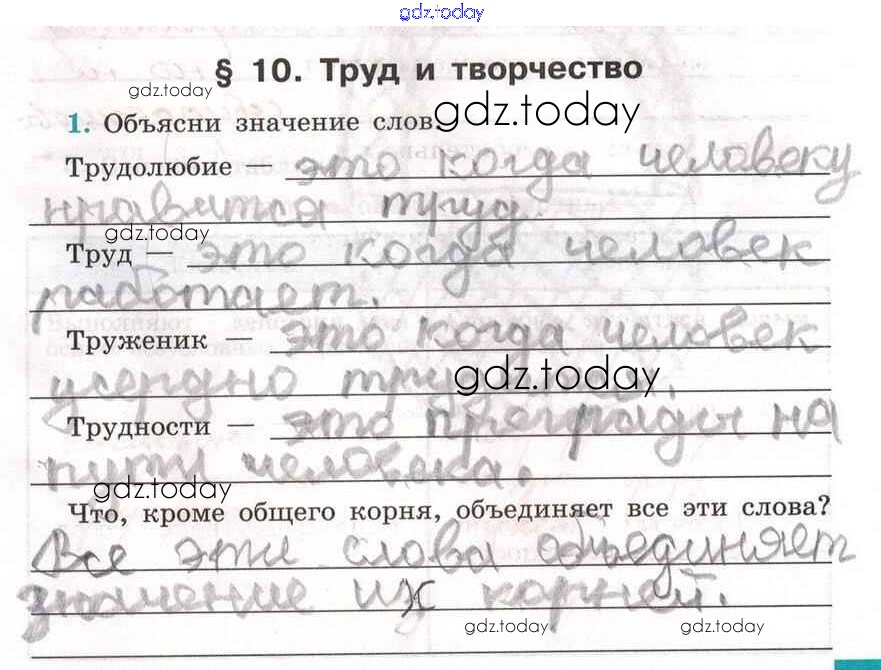 gdz.today
§ 10. Труд и творчество
gdz.today
1. Объясни значение слов.
gdz.today
Трудолюбие это когда человеку
нравится труд
gdz.today
Труд — это когда человек
работает.
Труженик — это когда человек
усердно
gdz.today
Трудности — это преграды на
пути человека.
gdz.today
Что, кроме общего корня, объединяет все эти слова?
Все эти слова объединяет
значение их корней.
gdz.today gdz.today